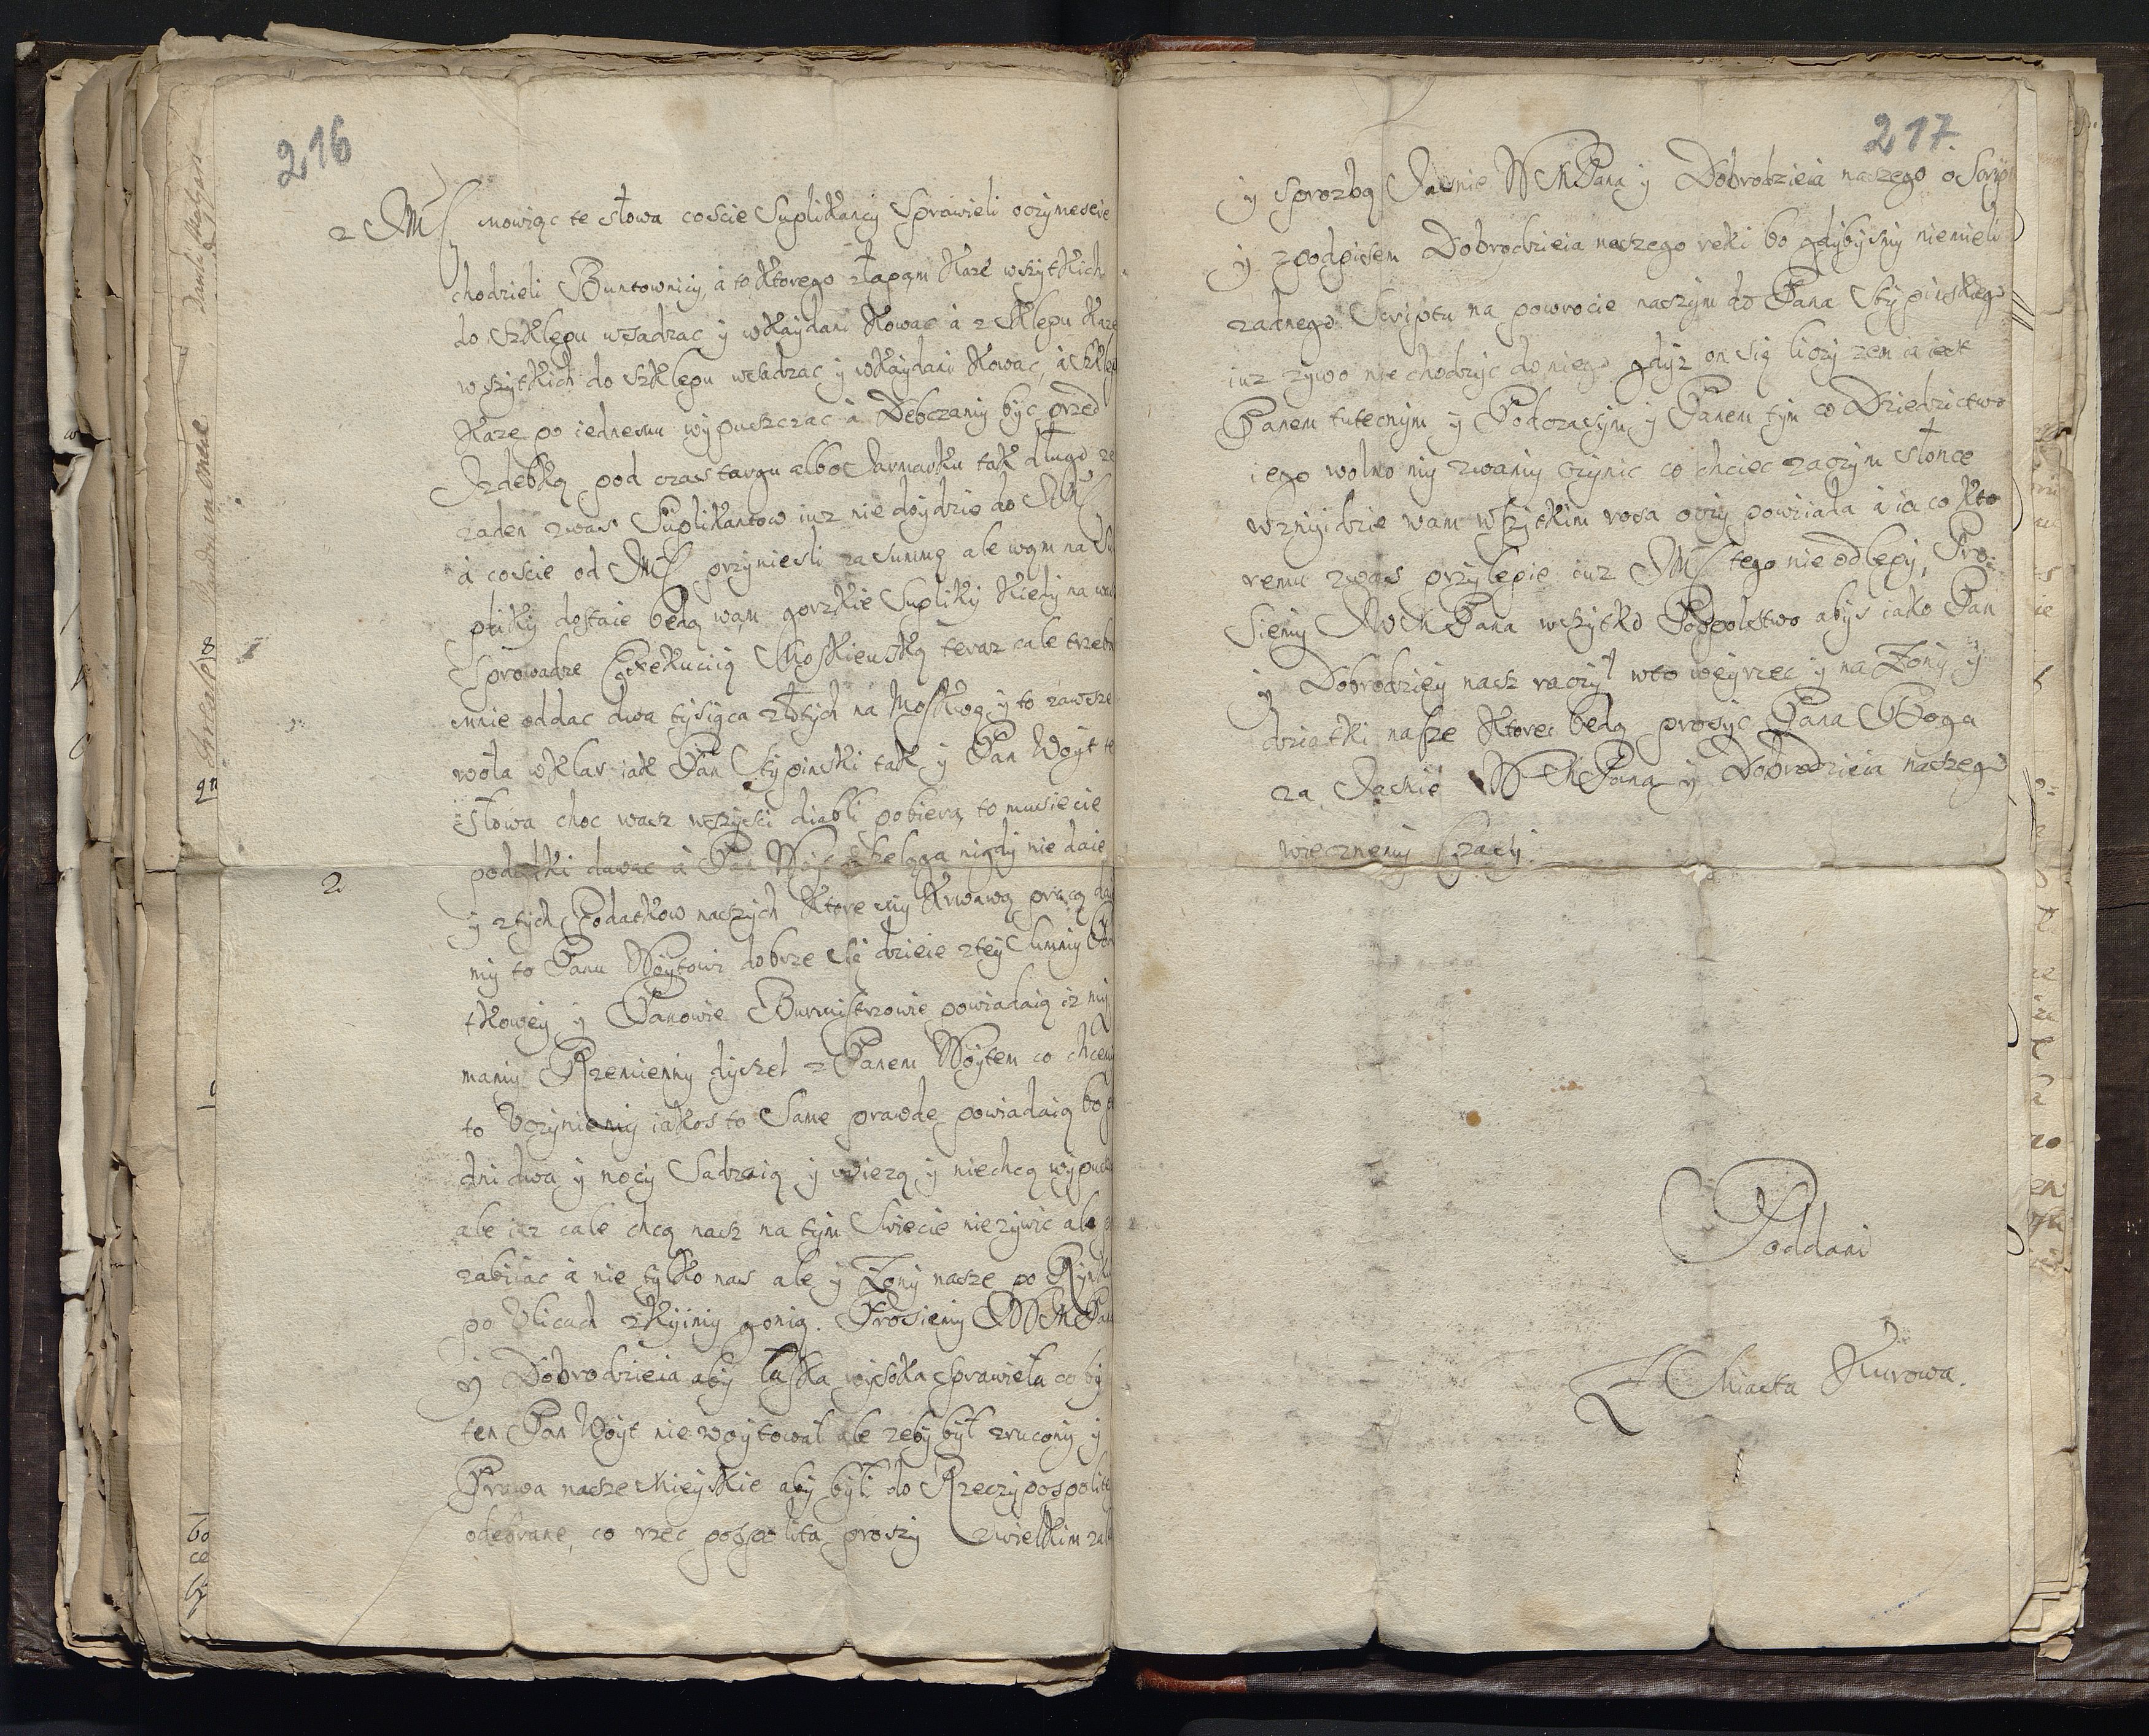 216
z JM mowiąc te słowa coscie Suplikancy Sprawieli oczymescie
chodzieli Buntownicy, á to ktorego złapąm Kazę wszytkich
do szklepu wsadzac y wkaydani Kowac á z Sklepu Kazę
wszytkich do szklepu wsadzac y wkaydani Kowac, á szklepu
Kazę po iednemu wypuszczac á Debczamy byc przed
Izdebką pod czas targu albo Iarmarku tak długo ze
zaden zwas Suplikantow iuz nie doydzie do JM
á coscie od JM przyniesli za summę ale wąm na Su
pliky dostaie będą wąm gorzkie Supliky kiedy na was
Sprowadze Exekuciią Moskiewską teraz cale trzeba
mnie oddac dwa tysiąca złotych na Moskwę y to zawsze
woła wklar iak Pan Stypinski tak y Pan Woyt te
słowa choc wasz wszysci diabli pobierą to musicie
podatki dawac á Pan Woyt szeląga nigdy nie daie
2
y ztych Podatkow naszych ktore my Krwawą pracą dai
my to Panu Woytowi dobrze się dzieie ztey Summy
tkowey y Panowie Burmistrzowie powiadaią iz my
mamy Rzemienny dyszel z Panem Woytem co chcemy
to Vczyniemy iakos to Same prawdę powiadaią bo
dni dwa y nocy Sadzaią y wiezą y niechcą wypuscic
ale iuz cale chcą nasz na tym Swiecie niezywic ale
zabiiac á nie tylko nas ale y Zony nasze po Rynku
po Vlicach zkyimy gonią. Prosiemy WM Pana
y Dobrodzieia aby łaska wysoka sprawieła co by
ten Pan Woyt nie woytował ale zeby był zrucony y
Prawa nasze Mieyskie aby byli do Rzeczypospolitey
odebrane, co rzec pospolita proszy zwielkim
217.
y sprozbą Iasnie WM Pana y Dobrodzieia naszego o Scrip
y zpodpisem Dobrodzieia naszego reki bo gdybysmy niemieli
zadnego Scriptu na powrocie naszym do Pana Stypinskiego
iuz zywo nie chodzyc do niego gdyz on się liczy zem ia iest
Panem tutecnym y Podczasym y Panem tym co Dziedzictwo
iego wolno my zwamy czynic co chciec zaczym słonce
wznyidzie wam wszytkim rosa oczy powziada á ia co kto
remu zwas przylepie iuz JM tego nie odlepy, Pro
Siemy JWM Pana wszytko Pospolstwo abys iako Pan
y Dobrodziey nasz raczył wto weyrzec y na Zony y
dziatki nasze ktore będą prosyc Pana Boga
za Iasnie WM Pana y Dobrodzieia naszego
wiecznemy Czasy.
Poddani
Z Miasta Kurowa.